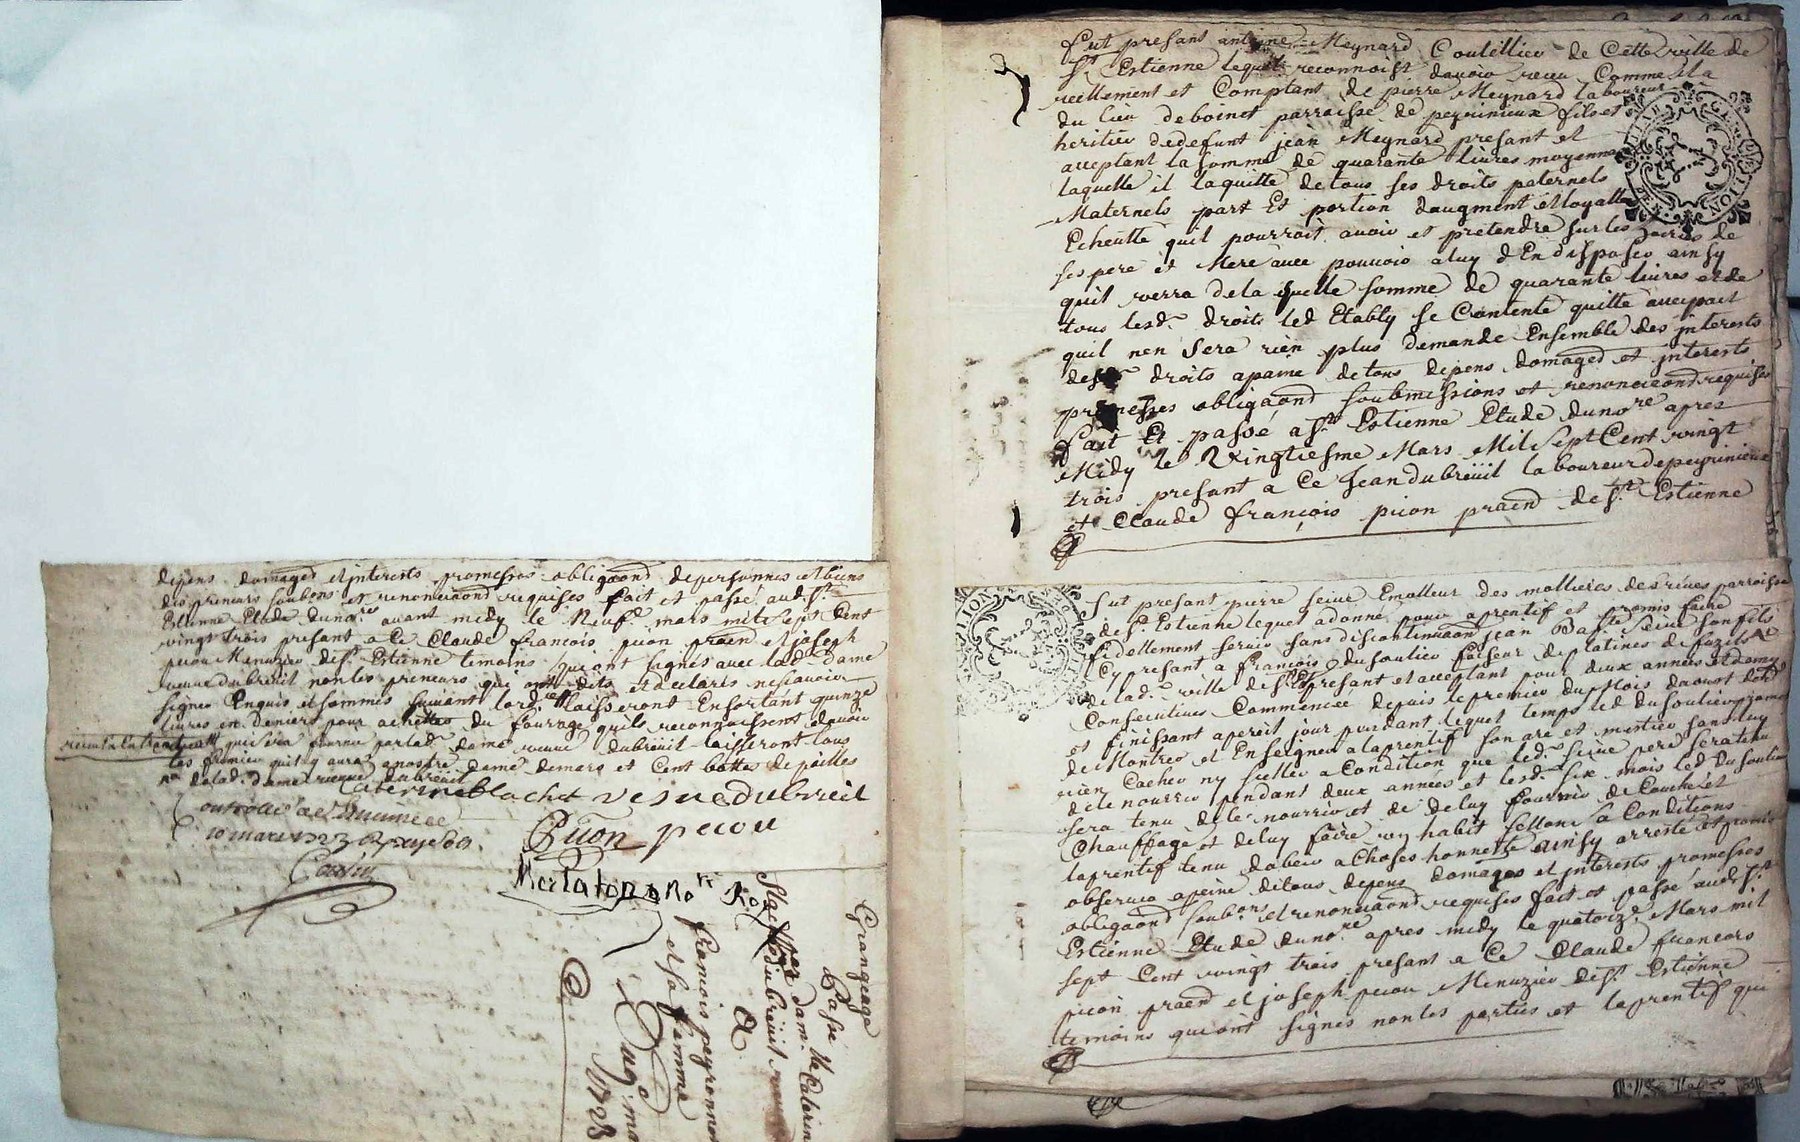 dépens domages et interests promesses obligaond de personnes et biens
des preneurs soubons et renonciaond requises fait et passé aud St
Estienne Etude du nore avant midy le Neufe mars mil sept Cent
vingt trois presant a Ce Claude francois picon praend et joseph
pecou Menuzier de St Estienne temoins qui ont signés avec lad dame
veuve dubreuil non les preneurs qui ont dits et declarés ne scavoir
signer Enquis et sommés suivant lordce laisseront En sortant quinze
livres en deniers pour achetter du fourage quils reconnoissent davoir
qui sera fournie par lade dame veuve dubreuil laisseront tous
les fumiers quil y aura a nostre dame de mars et Cent bottes de pailles
de lad. dame veuve dubreuil
Caterine blachet vesve dubreil
Controllé a St Etienne ce
10 mars 1723
Picon pecou
Grangeage
Passé
par dame Caterine
dubreuil veuve
A
francois peyronnet
et sa femme
Du 9e mars
1723
fut presant antoine Meynard Coutellier de Cette ville de
St Estienne lequel reconnoist davoir receu Comme il a
reellement et Comptant de pierre Meynard laboureur
du lieu de boinet parroisse de peyrinieux fils et
heritier de defunt jean Meynard presant et
acceptant la somme de quarante livres moyennant
laquelle il laquitte de tous ses droits paternels
Maternels part Et portion daugment et loyalle
Echeutte quil pourroit avoir et pretendre sur les hoiries de
ses pere et Mere avec pouvoir a luy dEn disposer ainsy
quil verra de la quelle somme de quarante livres et de
tous lesd. droits led Etably se Contente quitte avec pact
quil nen sera rien plus demande Ensemble des interests
desd. droits a paine de tous depens domaged et interests
promesses obligaond soubmissions et renonciaond requises
fait Et passé a St Estienne Etude du nore apres
Midy le Vingtiesme Mars Mil sept Cent vingt
trois presant a Ce Jean dubreüil laboureur de peyrinieux
et Claude françois picon praend de St Estienne
fut presant pierre seive Emolleur des mollieres des rives parroisse
de St Estienne lequel a donné pour aprentif et promis faire
fidellement servir sans discontinuaon jean Bapte seive son fils
Cy presant a françois du soulier faiseur de platines de fuzils
de lade ville de St Ene presant et acceptant pour deux années et demy
Consecutives Commencee depuis le premier du Mois daoust
et finissant a pareil jour pendant lequel temps led du soulier promet
de Montrer et Enseigner a laprentif son art et mestier sans luy
rien Cacher ny sceller a Condition que led. seive pere sera tenu
de le nourrir pendant deux années et lesd. six mois led du soulier
sera tenu de le nourrir et de luy fournir de Couche et
Chauffage et de luy faire un habit sellon sa Conditions
laprentif tenu dobeir a Choses honneste ainsy arresté et promis
observer a peine de tous depens domages et interests promesses
obligaond soubons et renonciaond requises fait et passé aud St
Estienne Etude du nore apres midy le quatorze Mars mil
sept Cent vingt trois presant a Ce Claude francois
picon praend et joseph pecou Menuzier de St Estienne
temoins qui ont signés non les parties et laprentif qui